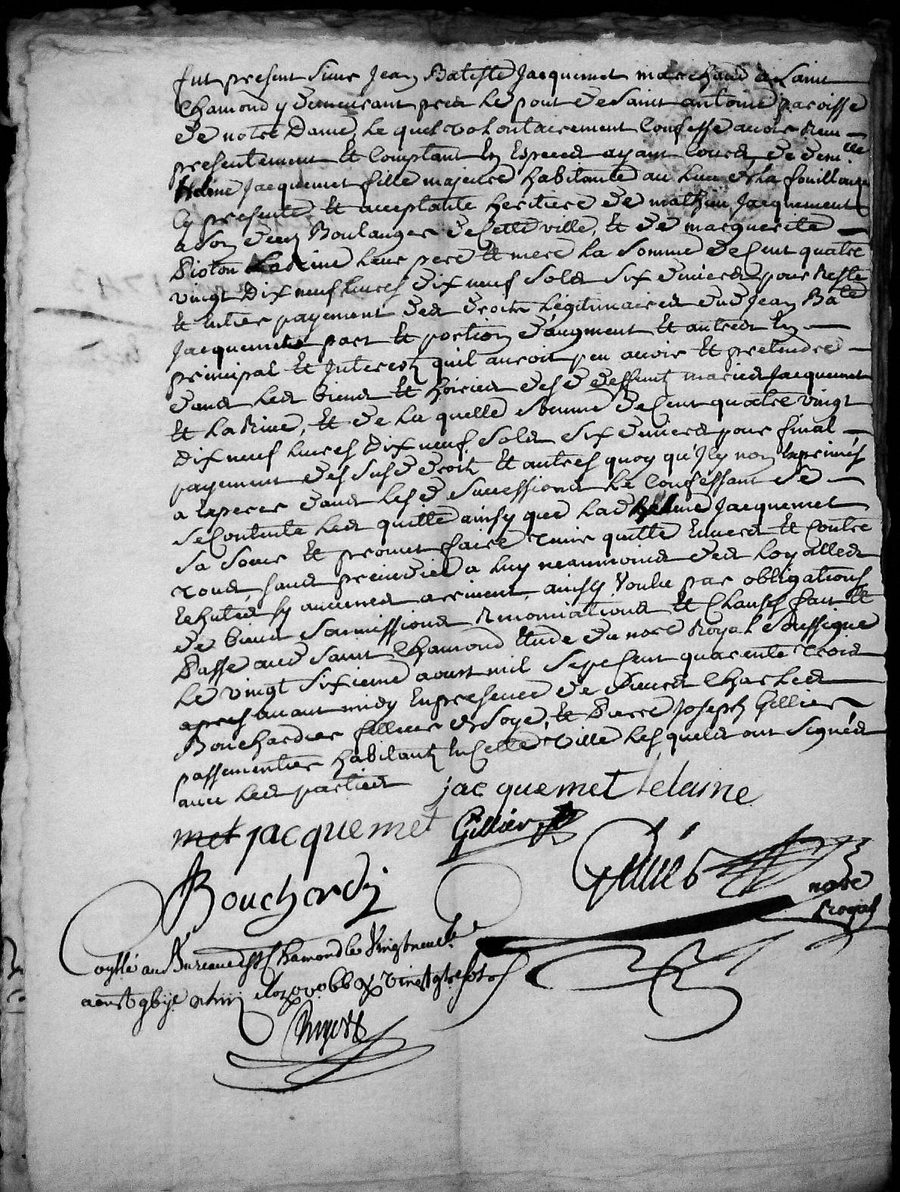 fut present sieur Jean Batiste Jacquemet marchand a Saint
Chamond y demeurant pres le pont de Saint antoine paroisse
de notre Dame, le quel volontairement Confesse avoir Reçu
presentement et Comptant En Especes ayant Cours, de dem.lle
Helaine Jacquemet fille majeure habitante au lieu de la fouillouse
Cy presente et acceptante heritiere de mathieu Jacquement
a son vivant Boulanger de Cette ville, et de marguerite
Pioton Larive leur pere et mere La somme de Cent quatre
vingt Dix neuf livres Dix neuf sols six deniers pour Reste
et Entier payement des droits légitimaires dud Jean Bate
Jacquemet part et portion d'augment et autres En
principal et Interest quil auroit peu avoir et pretendre
dans les biens et hoiries des d deffunt mariés Jacquemet
et Larive, et de la quelle somme de Cent quatre vingt
Dix neuf livres Dix neuf sols six deniers pour final
payement des susd droits et autres quoy qu'Ily non Exprimés
a Esperer dans les d successions le Confessant se
se Contente les quitte ainsy que lad helene Jacquemet
sa soeur et promet faire tenir quitte Envers et Contre
tous sans prejudice a luy neanmoins des loyalles
Echutes sy aucunes arrivent ainsy Voulu par obligations
de biens soumissions Renonciations et Clauses fait et
Passé aud Saint Chamond Etude du nore Royal soussigné
le vingt sixieme aoust mil sept Cent quarente trois
apres avant midy En presence de sieurs Charles
Bouchardier fillieur de Soye, et Pierre Joseph Gillier
passementier habitants En Cette ville les quels ont signés
avec les parties jacquemet lelaine
met jacquemet Gillier
Bouchardi
nore
Royal
au Bureau de St Chamond le Vingt neuf
aoust